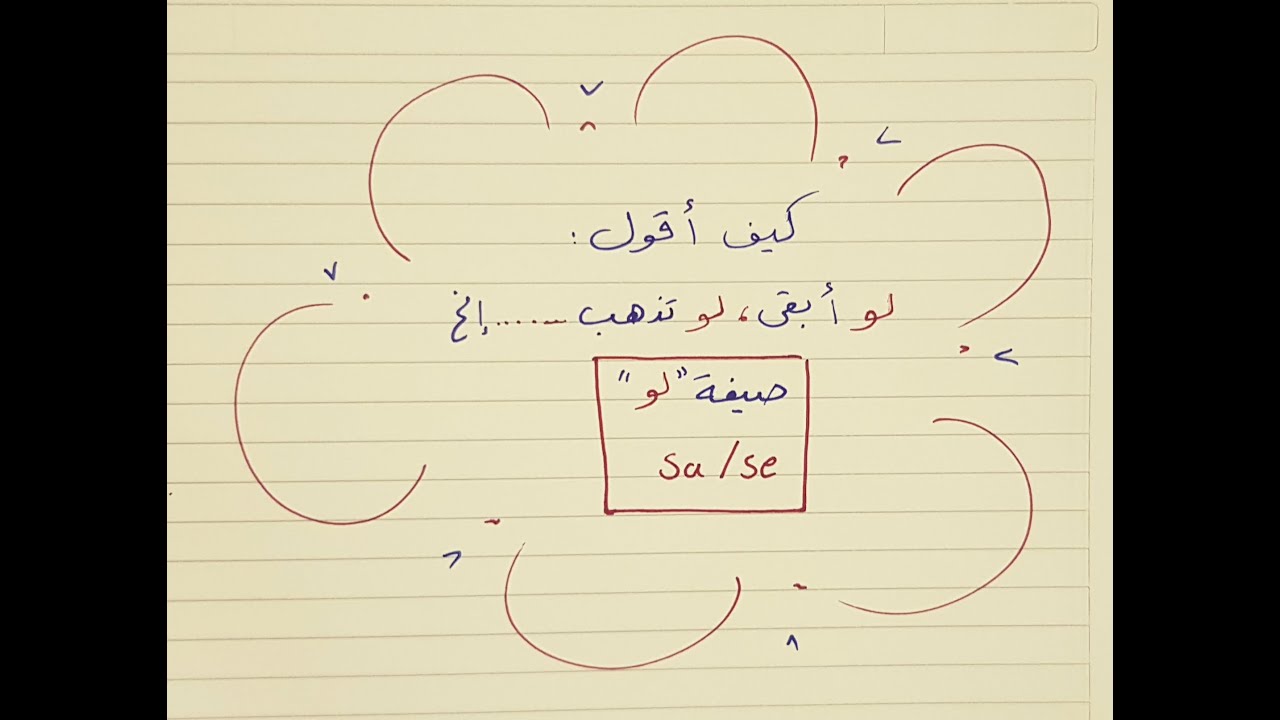 كيف أقول:
لو أبقى، لو تذهب ...... إلخ
صيغة "لو"
sa/se